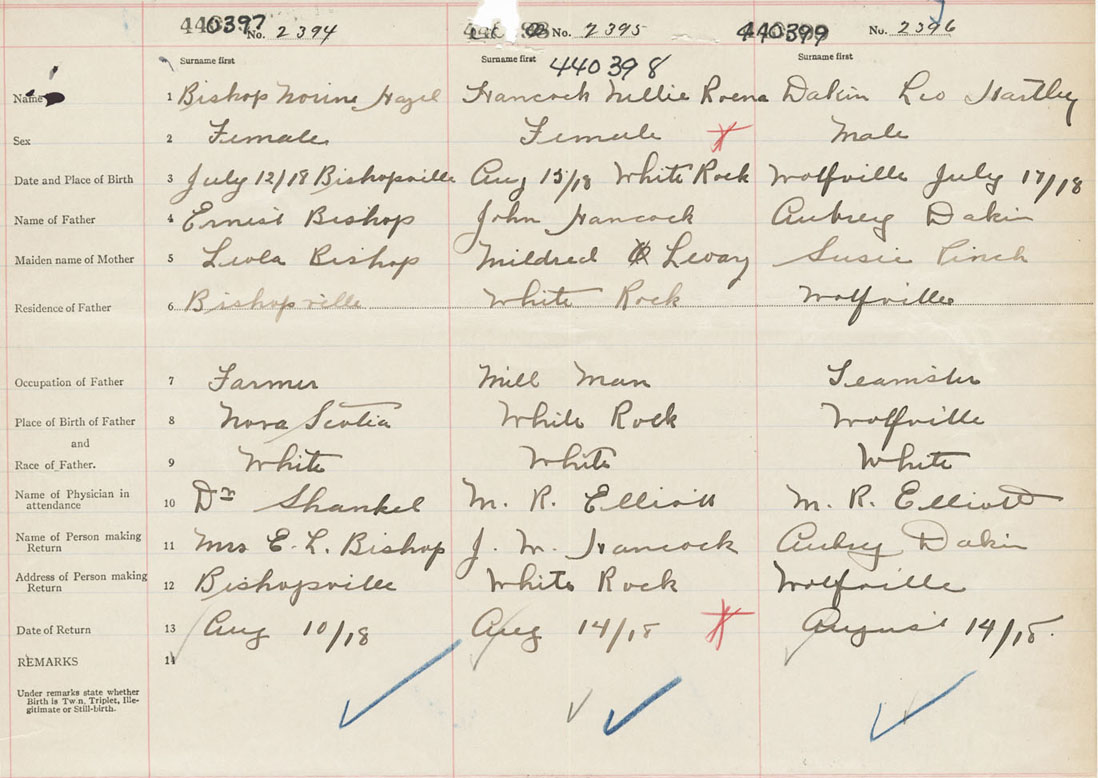 440397 No. 2394 No. 2395 440399 No. 2396
Surname first Surname first Surname first
440398
Name 1 Bishop Norine Hazel Hancock Nellie Roena Dakin Leo Hartley
Sex 2 Female Female Male
Date and Place of Birth 3 July 12/18 Bishopville Aug 15/18 White Rock Wolfville July 17/18
Name of Father 4 Ernest Bishop John Hancock Aubrey Dakin
Maiden name of Mother 5 Leola Bishop Mildred Levay Susie Pinch
Residence of Father 6 Bishopville White Rock Wolfville
Occupation of Father 7 Farmer Mill Man Teamster
Place of Birth of Father 8 Nova Scotia White Rock Wolfville
and
Race of Father. 9 White White White
Name of Physician in
attendance 10 Dr Shankel M. R. Elliott M. R. Elliott
Name of Person making
Return 11 Mrs E. L. Bishop J. W. Hancock Aubrey Dakin
Address of Person making
Return 12 Bishopsville White Rock Wolfville
Date of Return 13 Aug 10/18 Aug 14/18 August 14/18.
REMARKS 14
Under remarks state whether
Birth is Twin, Triplet, Ille-
gitimate or Still-birth.